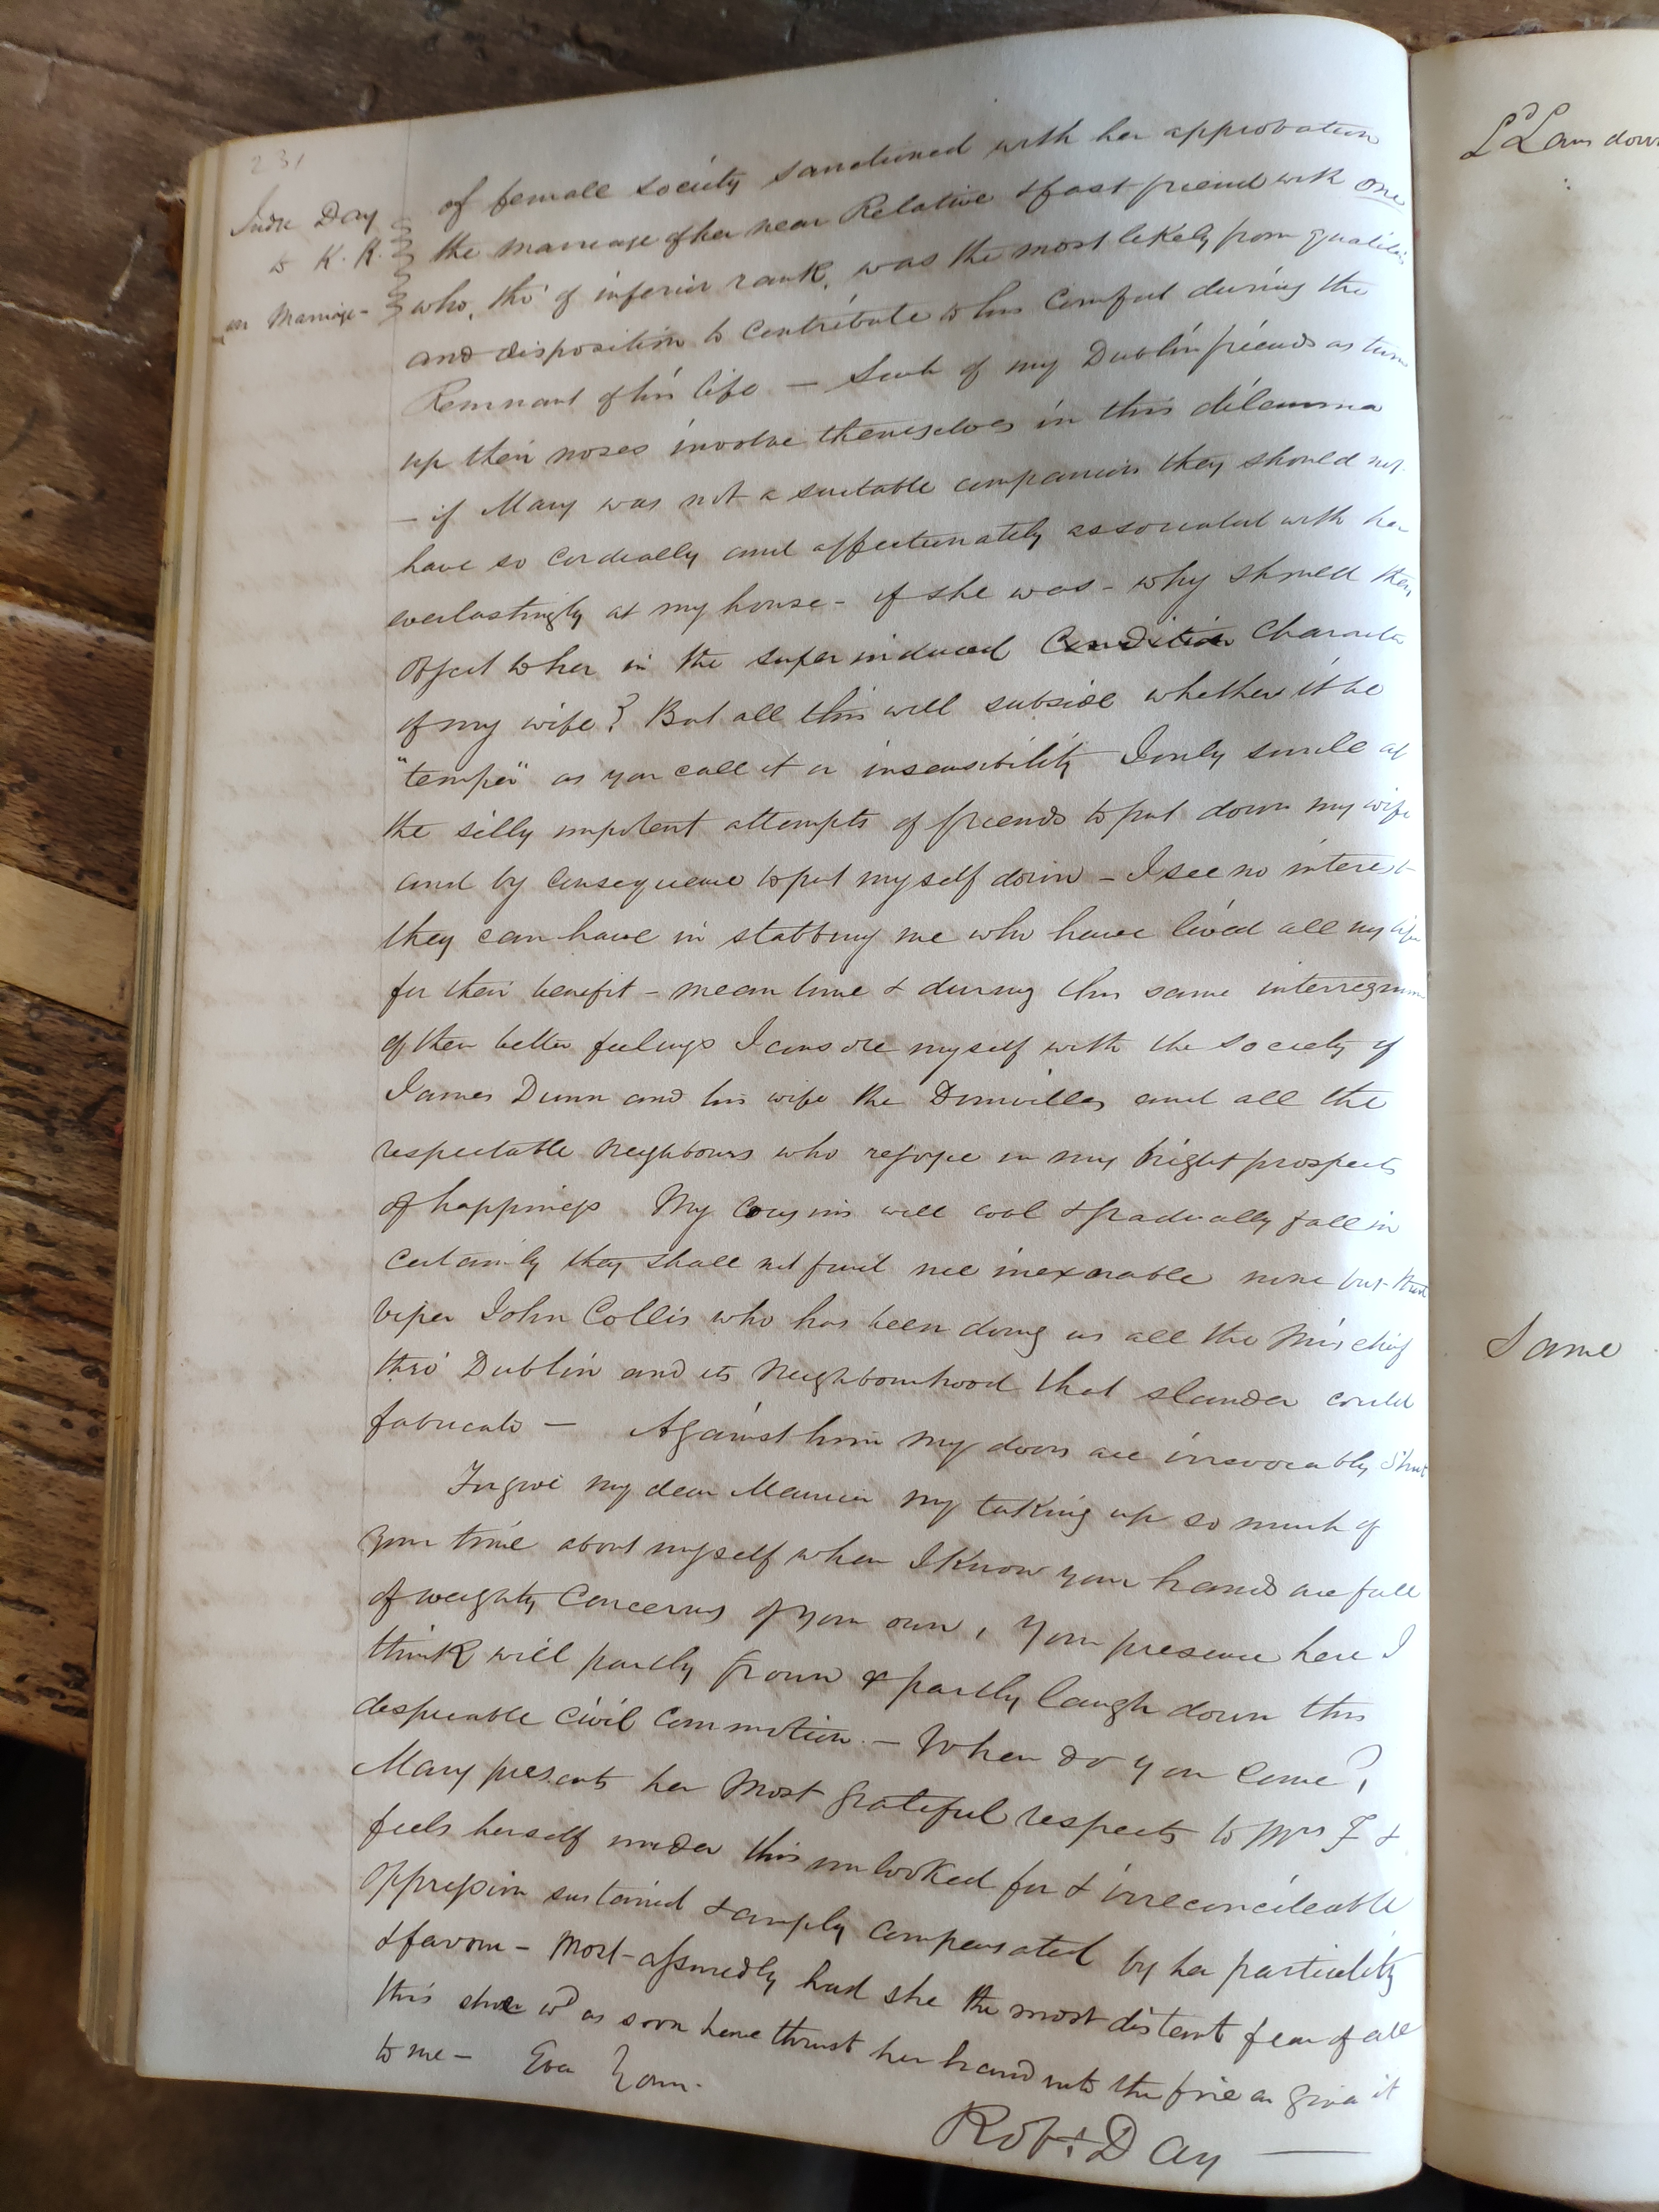 231
Judge Day
to K. K.
on Marriage -
of female society sanctioned with her approbation
the marriage of her near Relative & fast friend with one
who, tho' of inferior rank, was the most likely from qualities
and disposition to contribute to his comfort during the
Remnant of his life — Such of my Dublin friends as turn
up their noses involve themselves in this dilemma
— if Mary was not a suitable companion they should not
have so cordially and affectionately associated with her
everlastingly at my house - if she was - why should they
object to her in the superinduced Condition Character
of my wife? But all this will subside whether it be
"temper" as you call it or insensibility I only smile at
the silly impotent attempts of friends to put down my wife
and by consequence to put myself down - I see no interest
they can have in stabbing me who have lived all my life
for their benefit - mean time & during this same interregnum
of their better feelings I console myself with the society of
James Dunn and his wife the Domvilles and all the
respectable neighbours who rejoice in my bright prospects
of happiness My Cousins will cool & gradually fall in
Certainly they shall not find me inexorable none but that
viper John Collis who has been doing us all the Mischief
thro' Dublin and its Neighbourhood that slander could
fabricate — Against him my doors are irrevocably shut
Forgive my dear Maurice my taking up so much of
your time about myself when I know your hands are full
of weighty Concerns of your own, Your presence here I
think will partly frown & partly laugh down this
despicable civil Commotion. - When do you come?
Mary presents her Most grateful respects to Mrs F &
feels herself under this unlooked for & irreconcileable
oppression sustained & amply compensated by her partiality
& favour - Most assuredly had she the most distant fear of all
this she wd as soon have thrust her hand into the fire as given it
to me - Ever Yours.
Robt. Day —
Ld Lansdown
Same